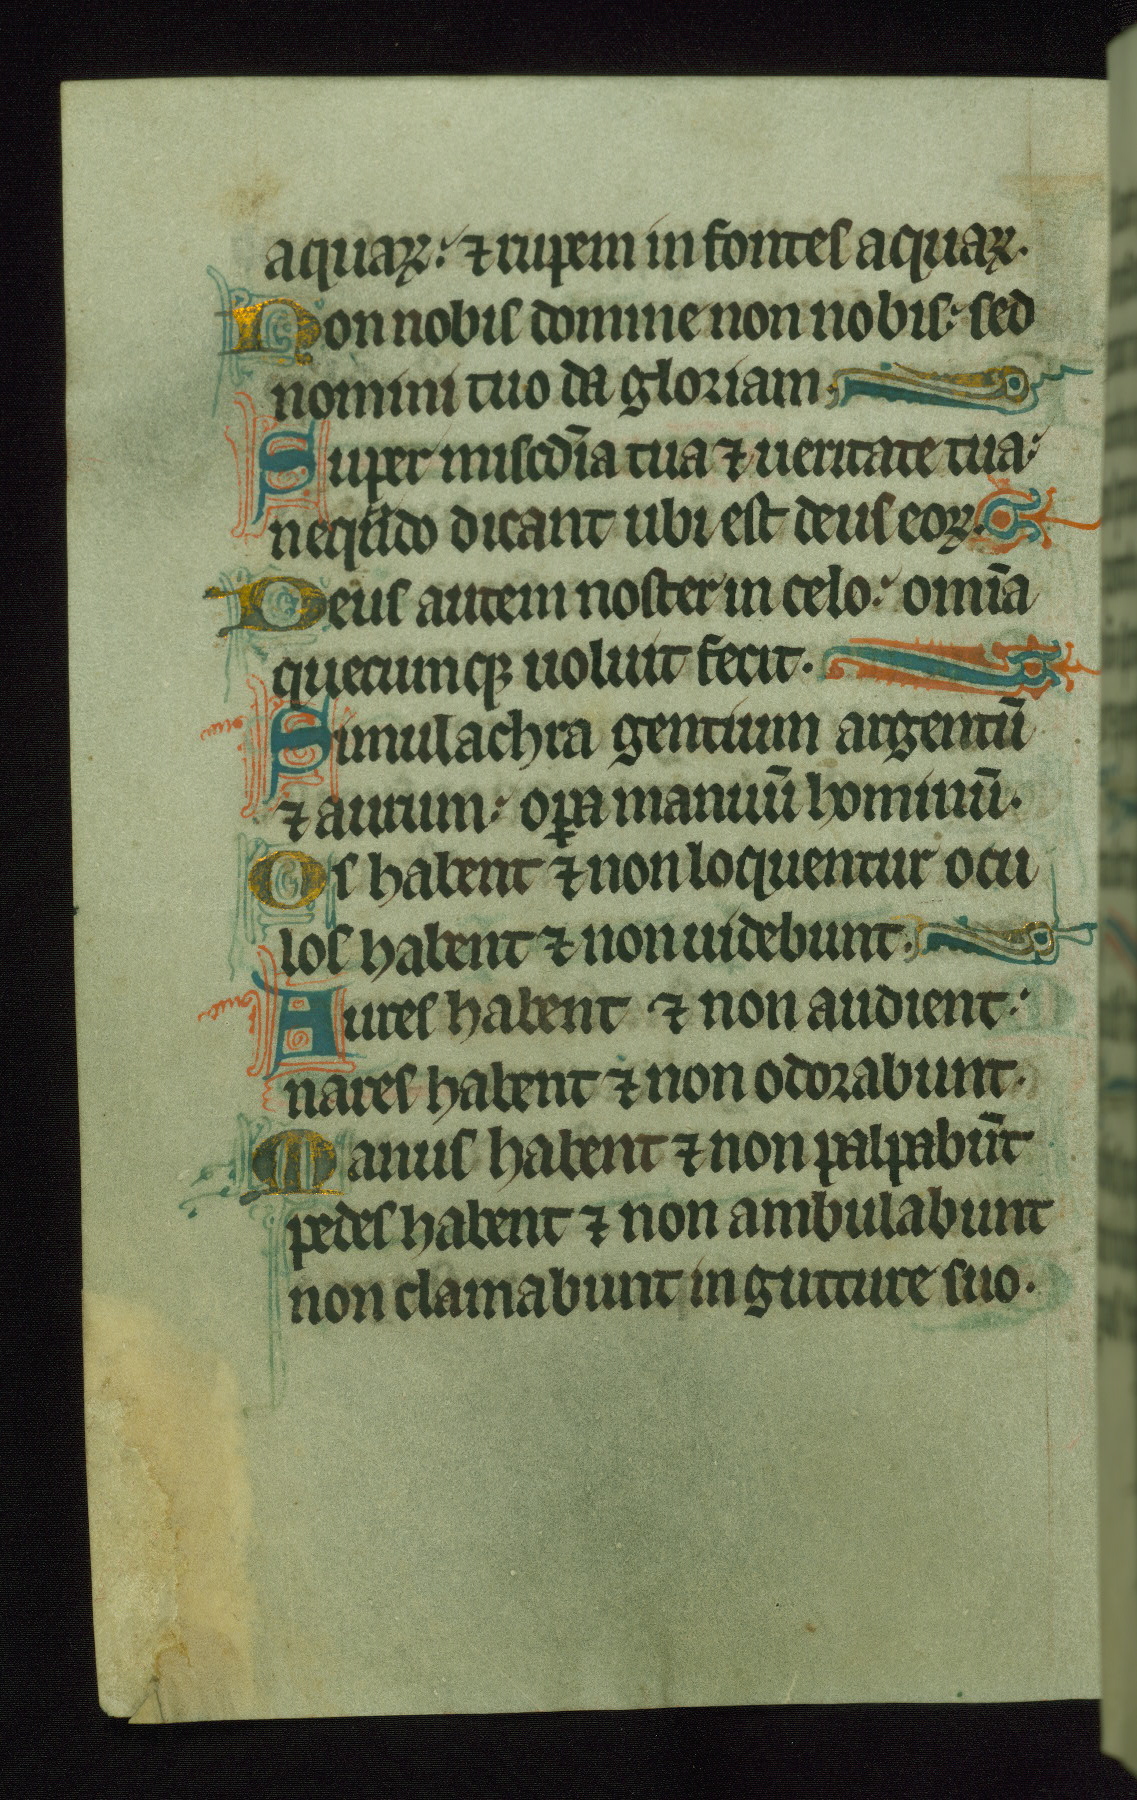 aquaꝝ: ⁊ rupem in fontes aquaꝝ.
Non nobis domine non nobis: sed
nomini tuo da gloriam.
Super misc̄dīa tua ⁊ ueritate tua:
nequādo dicant ubi est deus eoꝝ.
Deus autem noster in celo: omīa
quecumqꝫ uoluit fecit.
Simulachra gentium argentū
⁊ aurum: oꝑa manuū hominū.
Os habent ⁊ non loquentur ocu
los habent ⁊ non uidebunt.
Aures habent ⁊ non audient:
nares habent ⁊ non odorabunt.
Manus habent ⁊ non palpabūt
pedes habent ⁊ non ambulabunt
non clamabunt in gutture suo.